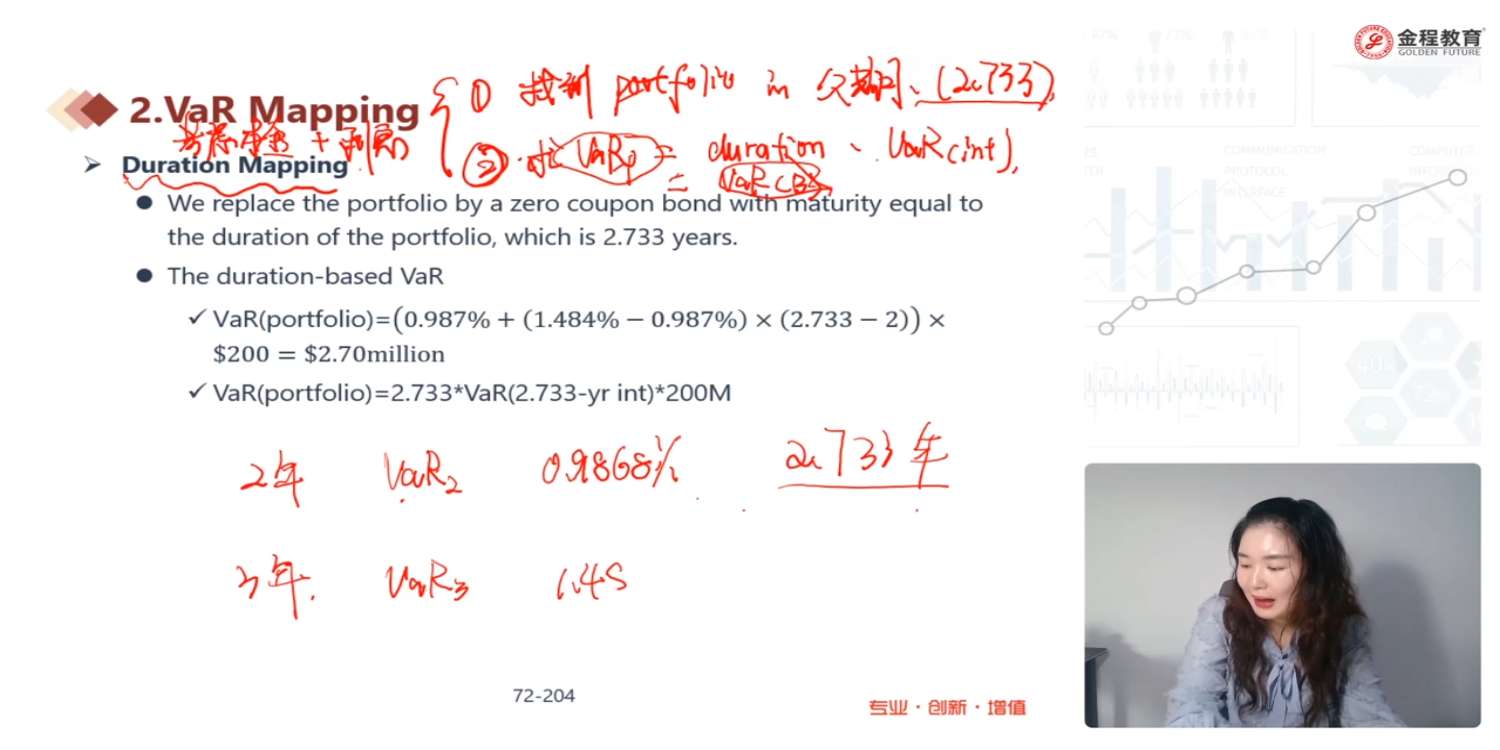 金程教育
GOLDEN FUTURE
① 找到 portfolio in 久期、(2.733),
2.VaR Mapping
考虑本金 + 利息
② VaRp = duration、VaR(int),
= VaR
Duration Mapping
We replace the portfolio by a zero coupon bond with maturity equal to
the duration of the portfolio, which is 2.733 years.
The duration-based VaR
✓ VaR(portfolio)=(0.987% + (1.484% − 0.987%) × (2.733 − 2)) ×
$200 = $2.70million
✓ VaR(portfolio)=2.733*VaR(2.733-yr int)*200M
2年 VaR2 0.9868% 2.733年
3年. VaR3 1.48
72-204
专业·创新·增值